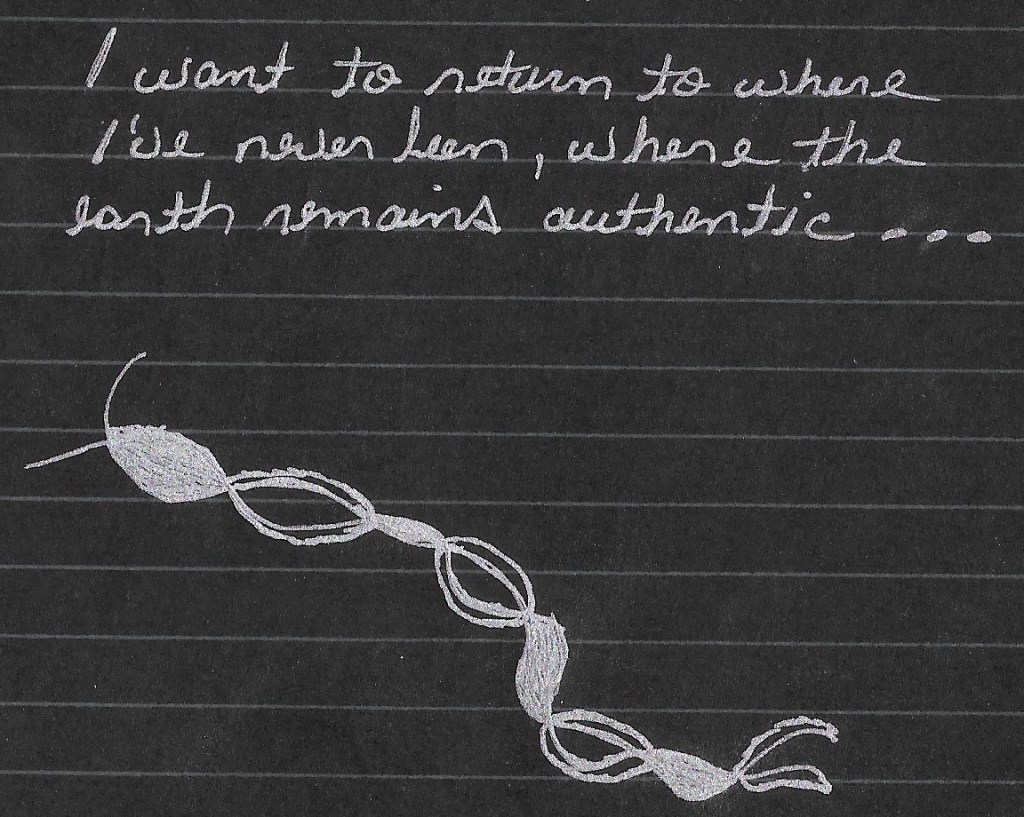 I want to return to where
I've never been, where the
earth remains authentic...